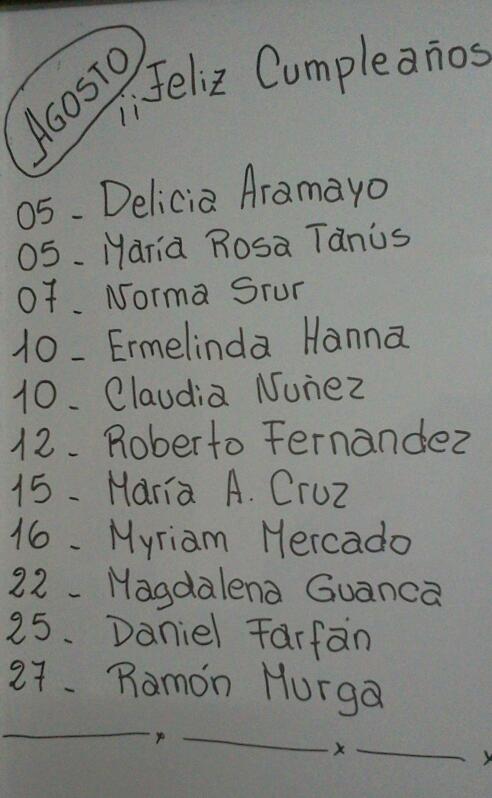 AGOSTO
¡¡Feliz Cumpleaños
05 - Delicia Aramayo
05 - María Rosa Tanús
07 - Norma Srur
10 - Ermelinda Hanna
10 - Claudia Nuñez
12 - Roberto Fernandez
15 - María A. Cruz
16 - Myriam Mercado
22 - Magdalena Guanca
25 - Daniel Farfán
27 - Ramón Murga